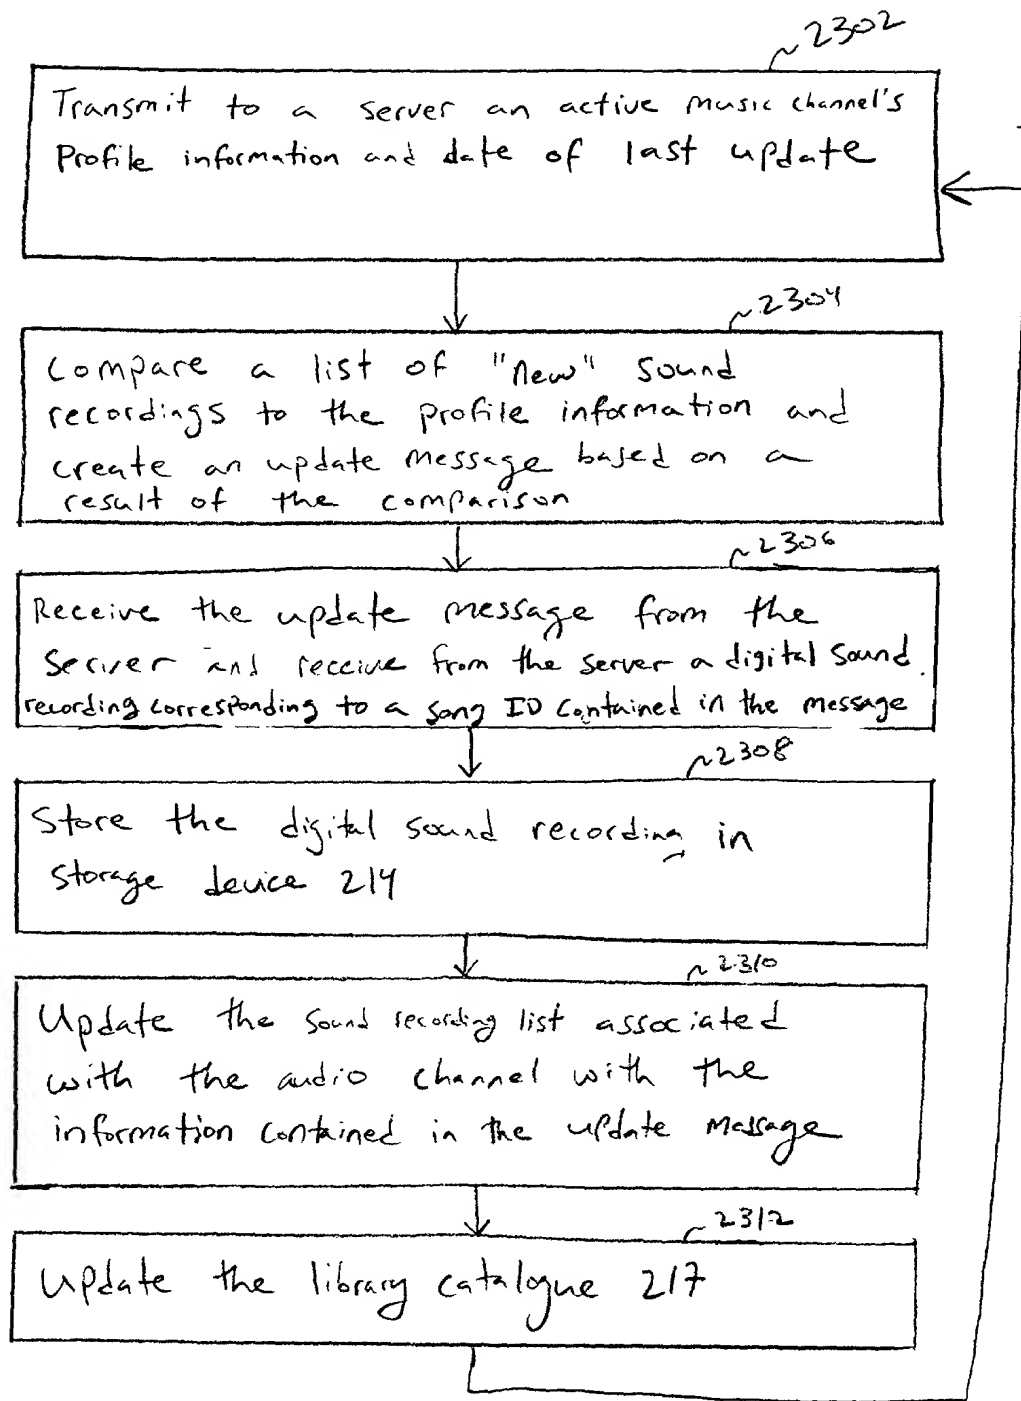 ~2302
Transmit to a server an active music channel's
Profile information and date of last update
~2304
Compare a list of "new" sound
recordings to the profile information and
create an update message based on a
result of the comparison
~2306
Receive the update message from the
server and receive from the server a digital sound
recording corresponding to a song ID contained in the message
~2308
Store the digital sound recording in
storage device 214
~2310
Update the sound recording list associated
with the audio channel with the
information contained in the update message
~2312
Update the library catalogue 217